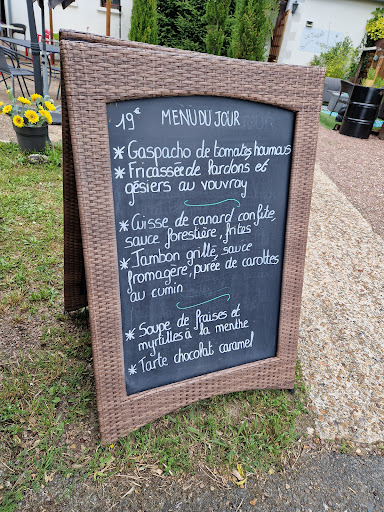 19€ MENU DU JOUR
* Gaspacho de tomates, houmous
* Fricassée de lardons et
gésiers au vouvray
* Cuisse de canard confite,
sauce forestière, frites
* Jambon grillé, sauce
fromagère, purée de carottes
au cumin
* Soupe de fraises et
myrtilles à la menthe
* Tarte chocolat caramel